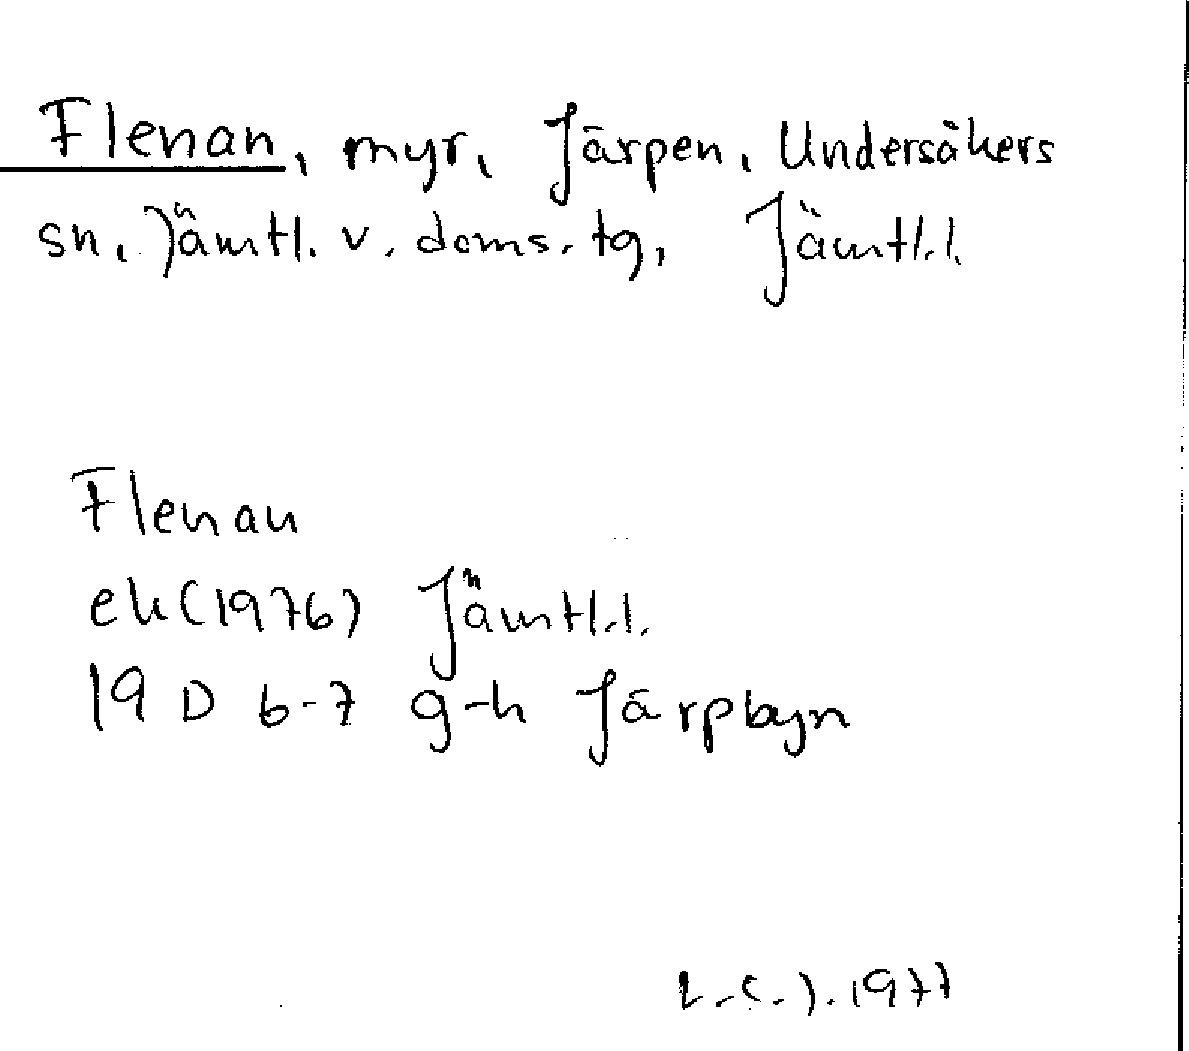 Flenan, myr, Järpen, Undersåkers
sn, Jämtl. v. doms. tg, Jämtl.l.
Flenan
ek (1976) Jämtl.l.
19 D 6-7 g-h Järpbyn
1977